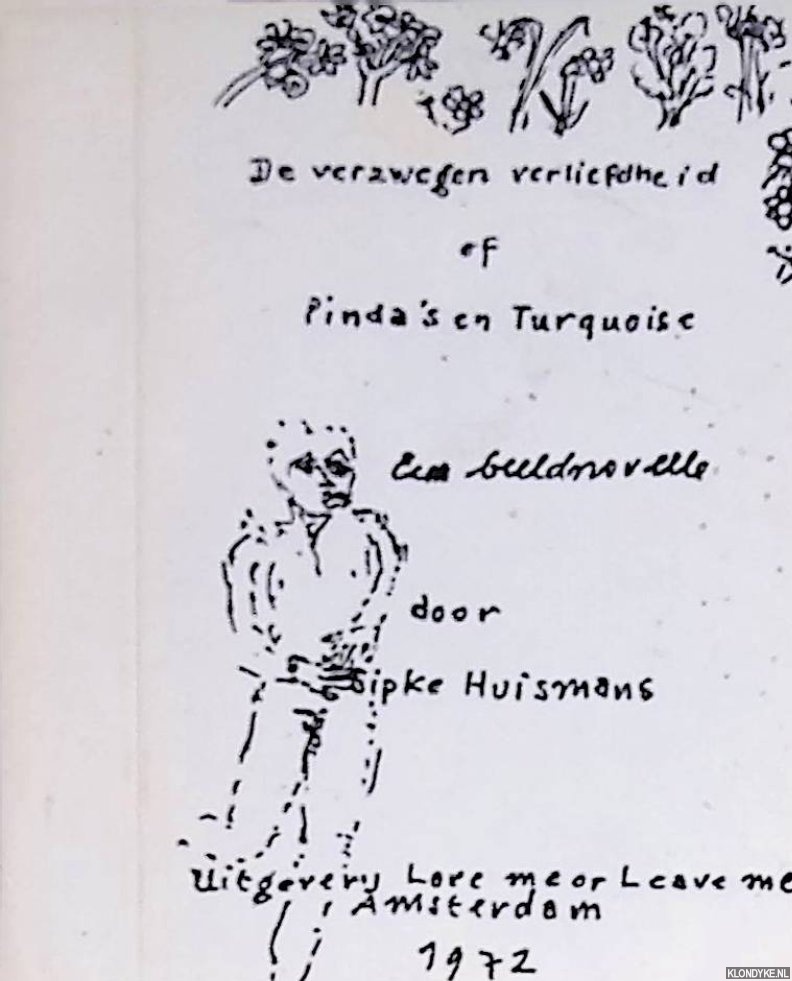 De verzwegen verliefdheid
of
Pinda's en Turquoise
Een beeldnovelle
door
Sipke Huismans
Uitgeverij Love me or Leave me
Amsterdam
1972
KLONDYKE.NL